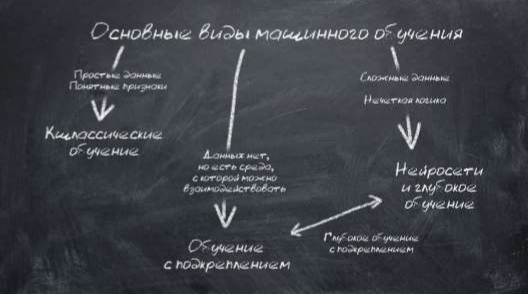 Основные виды машинного обучения
Простые данные
Понятные признаки
Классическое
обучение
Данных нет,
но есть среда,
с которой можно
взаимодействовать
Обучение
с подкреплением
Сложные данные
Нечеткая логика
Нейросети
и глубокое
обучение
Глубокое обучение
с подкреплением